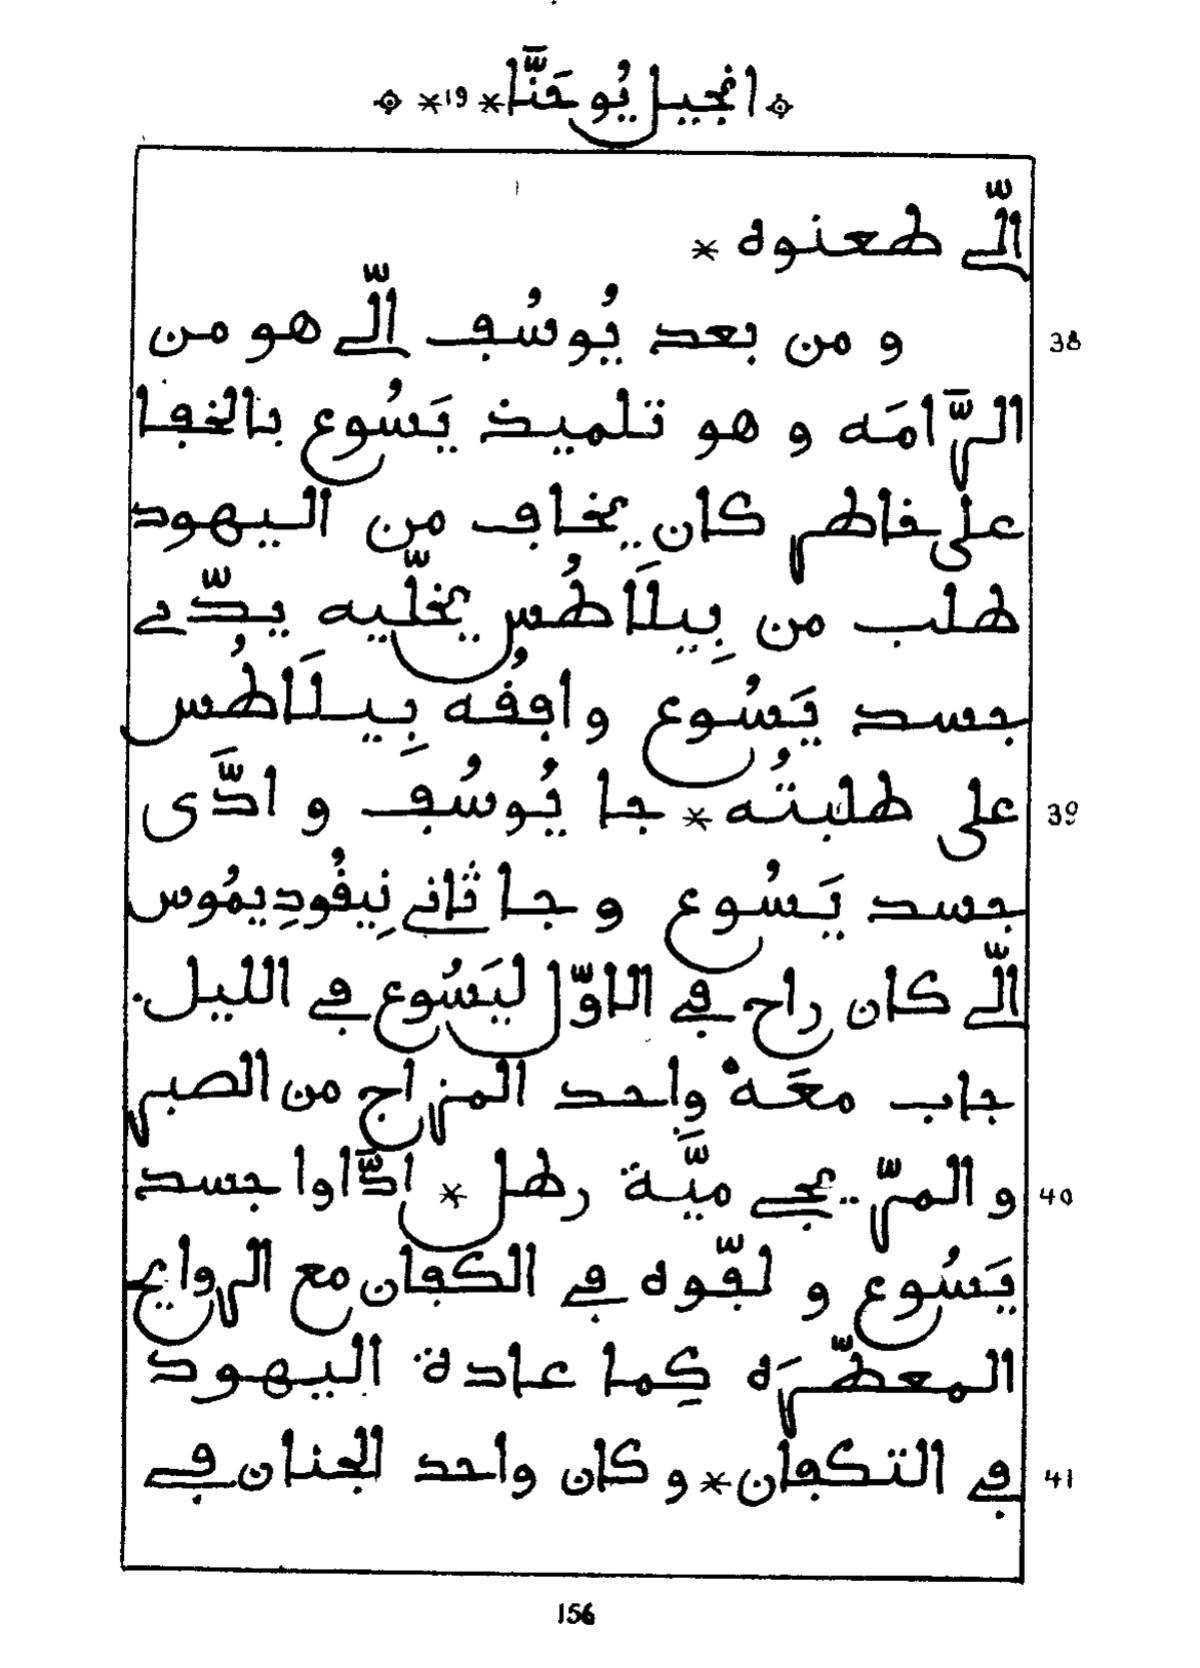 انجيل يُوحَنَّا * 19 *
إلّي طعنوه *
38 و من بعد يُوسُف إلّي هو من
الرَّامَه و هو تلميذ يَسُوع بالخفا
على خاطر كان يخاف من اليهود
طلب من بِيلَاطُس يخلّيه يدّي
جسد يَسُوع وافقُه بِيلَاطُس
39 على طلبتُه * جا يُوسُف و ادَّى
جسد يَسُوع و جا ثاني نِيقُودِيمُوس
إلّي كان راح في الاوّل ليَسُوع في الليل.
جاب معَهْ واحد المزاج من الصبر
40 و المرّ يجي مِيَّة رطل * ادَّاوا جسد
يَسُوع و لفّوه في الكفان مع الروايح
المعطّرَه كِما عادة اليهود
41 في التكفان * و كان واحد الجنان في
156